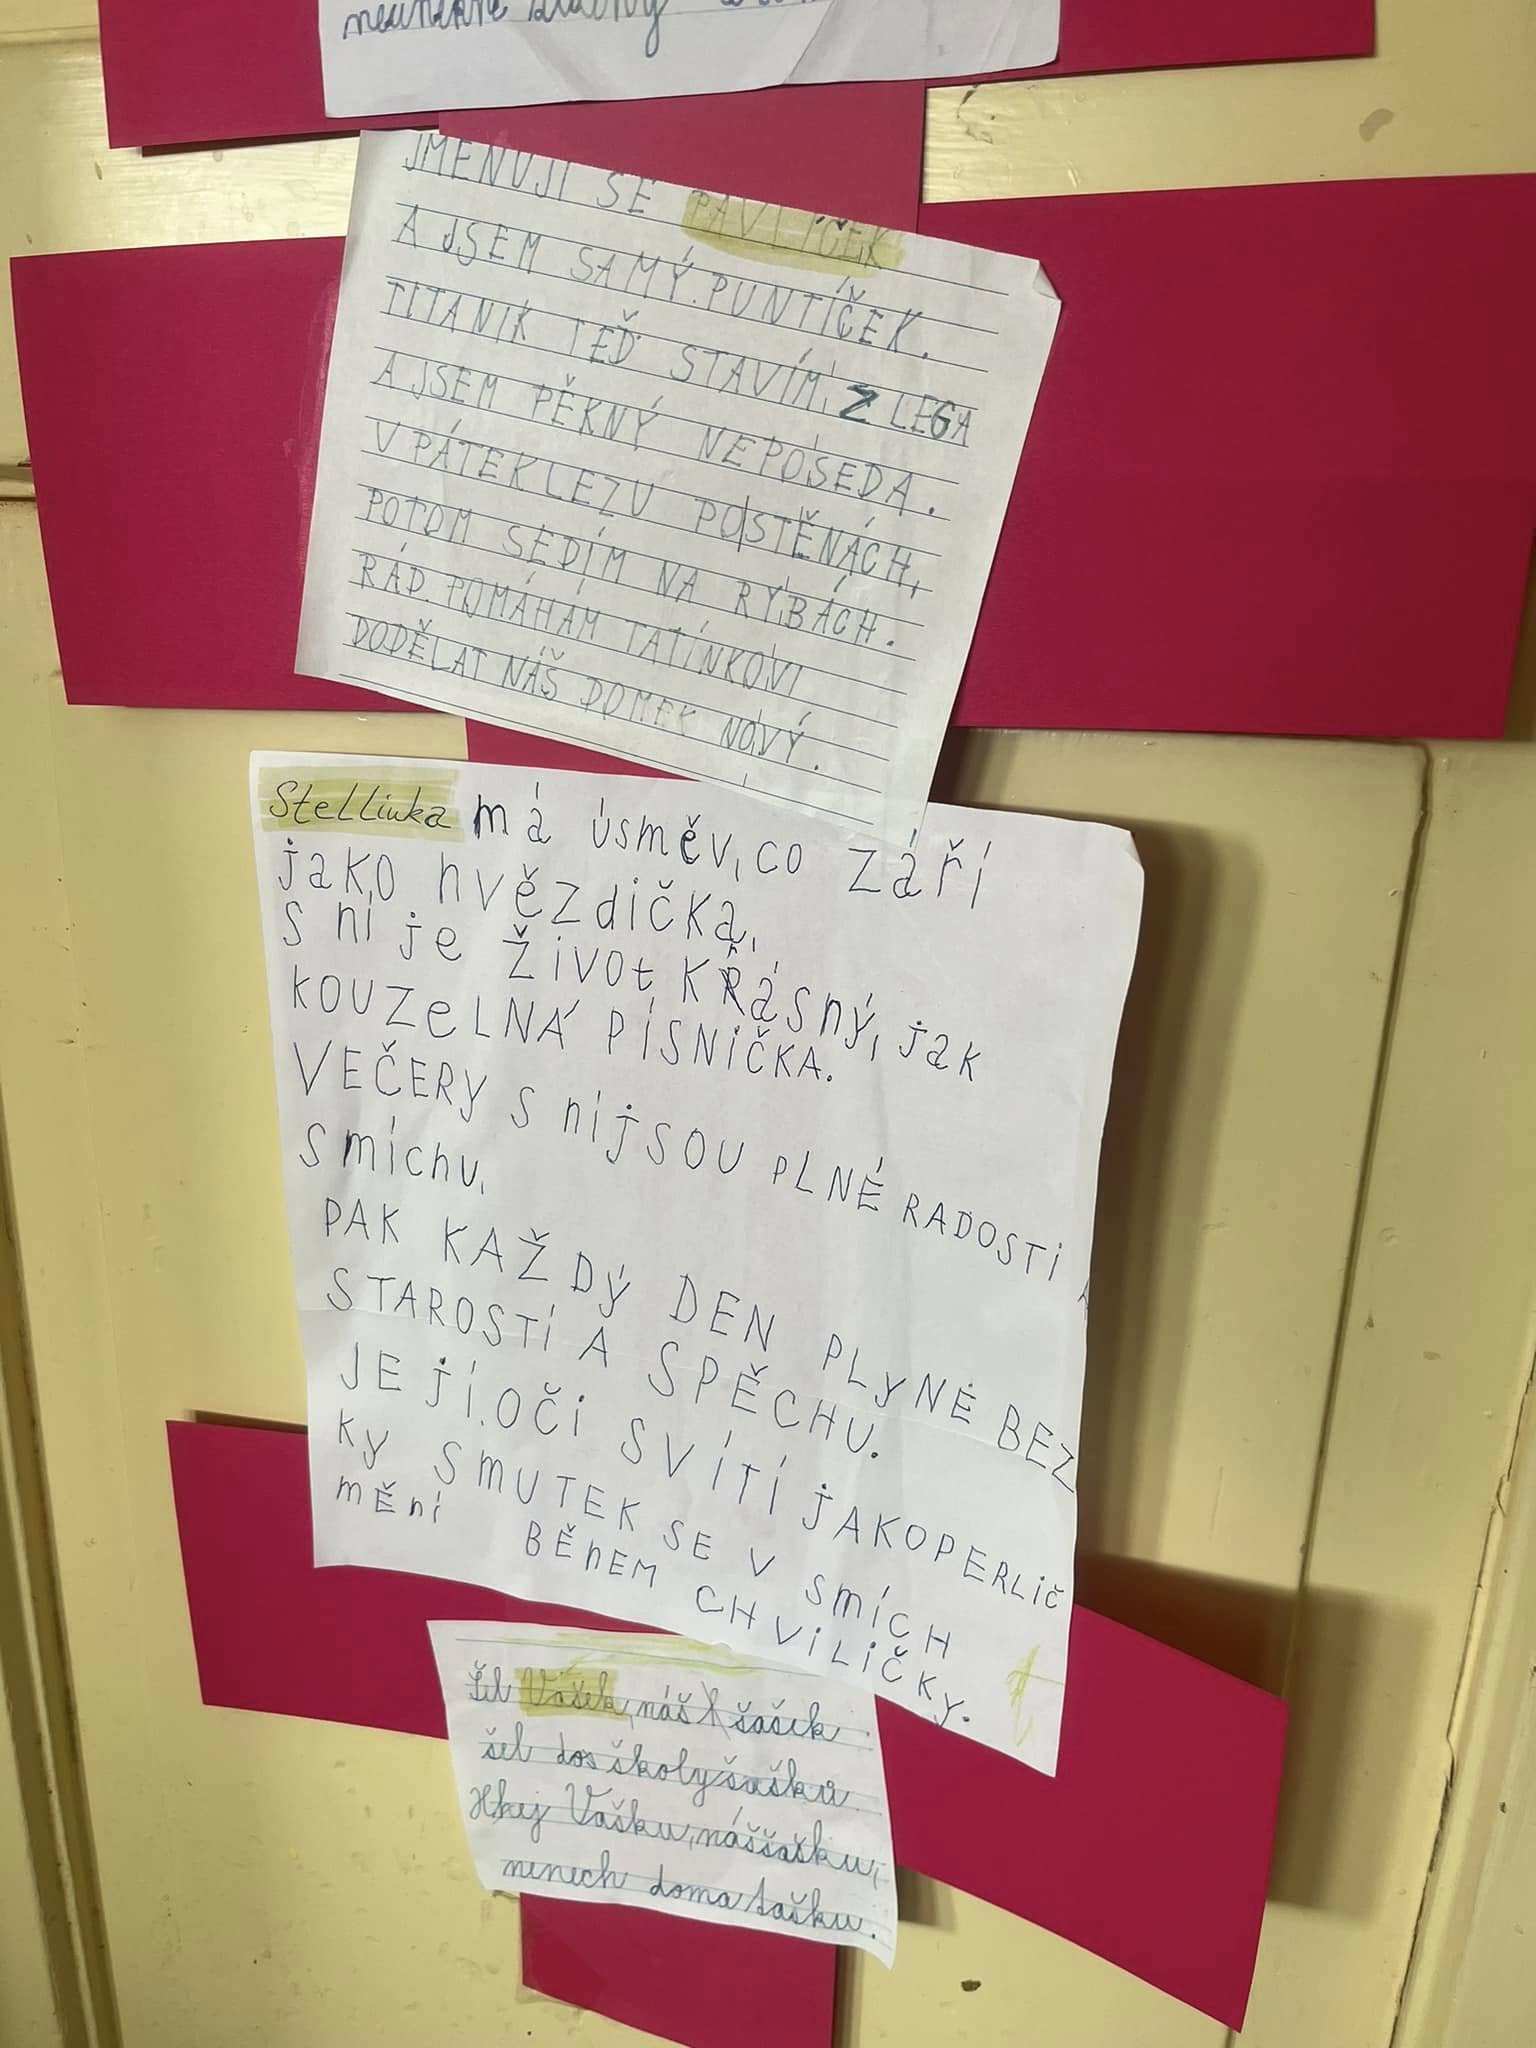 JMENUJI SE PAVLÍČEK
A JSEM SAMÝ PUNTÍČEK.
TITANIK TEĎ STAVÍM Z LEGA
A JSEM PĚKNÝ NEPOSEDA.
V PÁTEK LEZU PO STĚNÁCH,
POTOM SEDÍM NA RYBÁCH.
RÁD POMÁHÁM TATÍNKOVI
DODĚLAT NÁŠ DOMEK NOVÝ.
Stellinka má úsměv, co září
jako hvězdička,
s ní je život krásný, jak
kouzelná písnička.
VEČERY s ní jsou plné RADOSTI A
smíchu,
PAK KAŽDÝ DEN PLYNE BEZ
STAROSTÍ A SPĚCHU.
JEJÍ OČI SVÍTÍ JAKO PERLIČ
KY SMUTEK SE V SMÍCH
mění BĚHEM CHVILIČKY.
Šel Vašek, náš šašek
šel do školy šašků.
Hej Vašku, náš šašku,
nenech doma tašku.